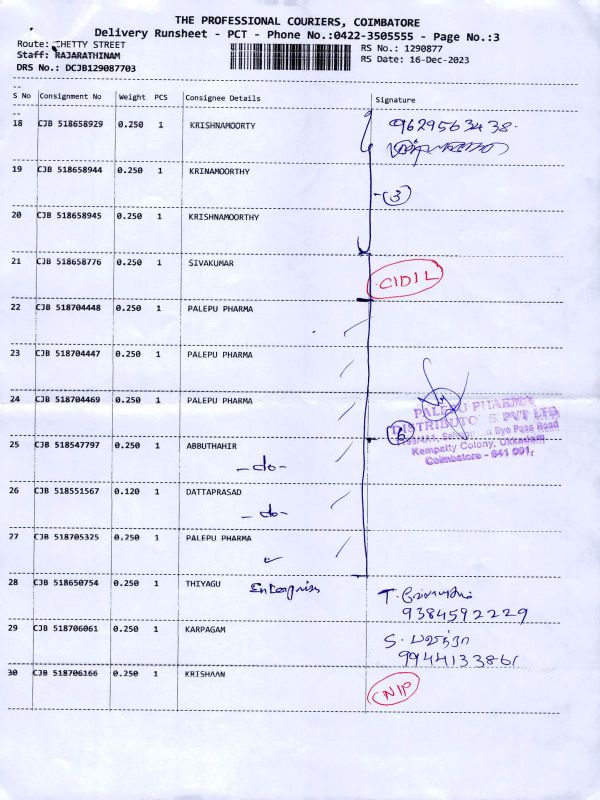 THE PROFESSIONAL COURIERS, COIMBATORE
Delivery Runsheet - PCT - Phone No.:0422-3505555 - Page No.:3
Route: CHETTY STREET
Staff: RAJARATHINAM
DRS No.: DCJB129087703
RS No.: 1290877
RS Date: 16-Dec-2023
S No Consignment No Weight PCS Consignee Details Signature
18 CJB 518658929 0.250 1 KRISHNAMOORTY 9629563438.
19 CJB 518658944 0.250 1 KRINAMOORTHY -(3)
20 CJB 518658945 0.250 1 KRISHNAMOORTHY
21 CJB 518658776 0.250 1 SIVAKUMAR CIDIL
22 CJB 518704448 0.250 1 PALEPU PHARMA
23 CJB 518704447 0.250 1 PALEPU PHARMA
24 CJB 518704469 0.250 1 PALEPU PHARMA
PALEPU PHARMA
DISTRIBUTORS PVT LTD
Bye Pass Road
Kempatty Colony, Ukkadam
Coimbatore - 641 001.
6
25 CJB 518547797 0.250 1 ABBUTHAHIR
-do-
26 CJB 518551567 0.120 1 DATTAPRASAD
-do-
27 CJB 518705325 0.250 1 PALEPU PHARMA
28 CJB 518650754 0.250 1 THIYAGU Enterprises T.
9384592229
29 CJB 518706061 0.250 1 KARPAGAM S.
9944133861
30 CJB 518706166 0.250 1 KRISHAAN NIP